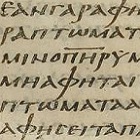 ΕΑΝΓΑΡΑΦΗ
ΡΑΠΤΩΜΑΤ
ΜΙΝΟΠ̅Η̅Ρ̅ΥΜ
ΜΗΑΦΗΤΑΙ
ΠΤΩΜΑΤΑΑ
ΑΦΗϹΕΙΤΑΠ